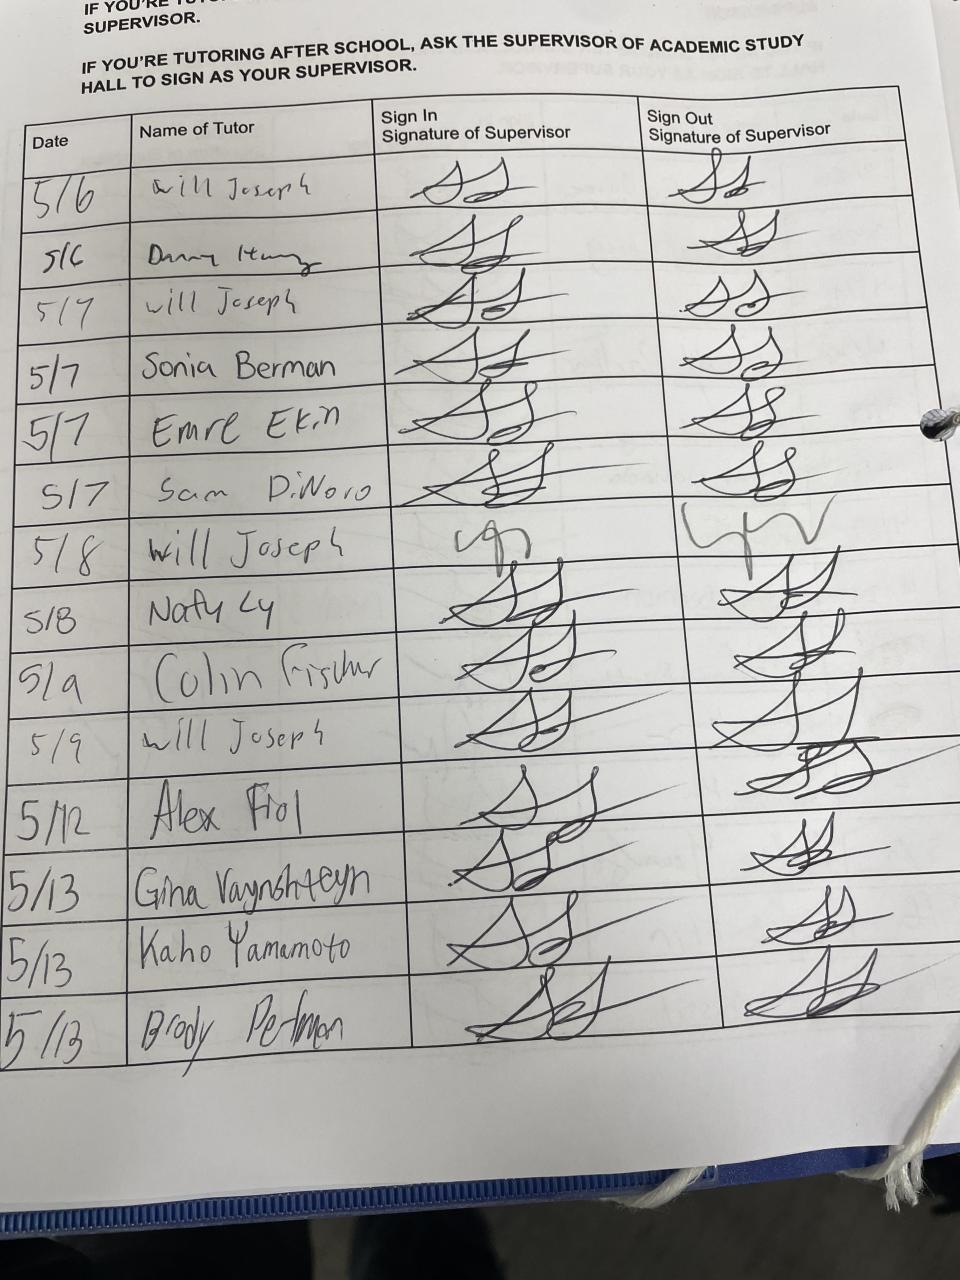 IF YOU'RE TUTOR
SUPERVISOR.
IF YOU'RE TUTORING AFTER SCHOOL, ASK THE SUPERVISOR OF ACADEMIC STUDY
HALL TO SIGN AS YOUR SUPERVISOR.
Date Name of Tutor Sign In Signature of Supervisor Sign Out Signature of Supervisor
5/6 Will Joseph
5/6 Danny
5/7 Will Joseph
5/7 Sonia Berman
5/7 Emre Ekin
5/7 Sam DiNoro
5/8 Will Joseph
5/8 Naty Ly
5/9 Colin Fischer
5/9 Will Joseph
5/12 Alex Fiol
5/13 Gina Vaynshteyn
5/13 Kaho Yamamoto
5/13 Brody Perlman